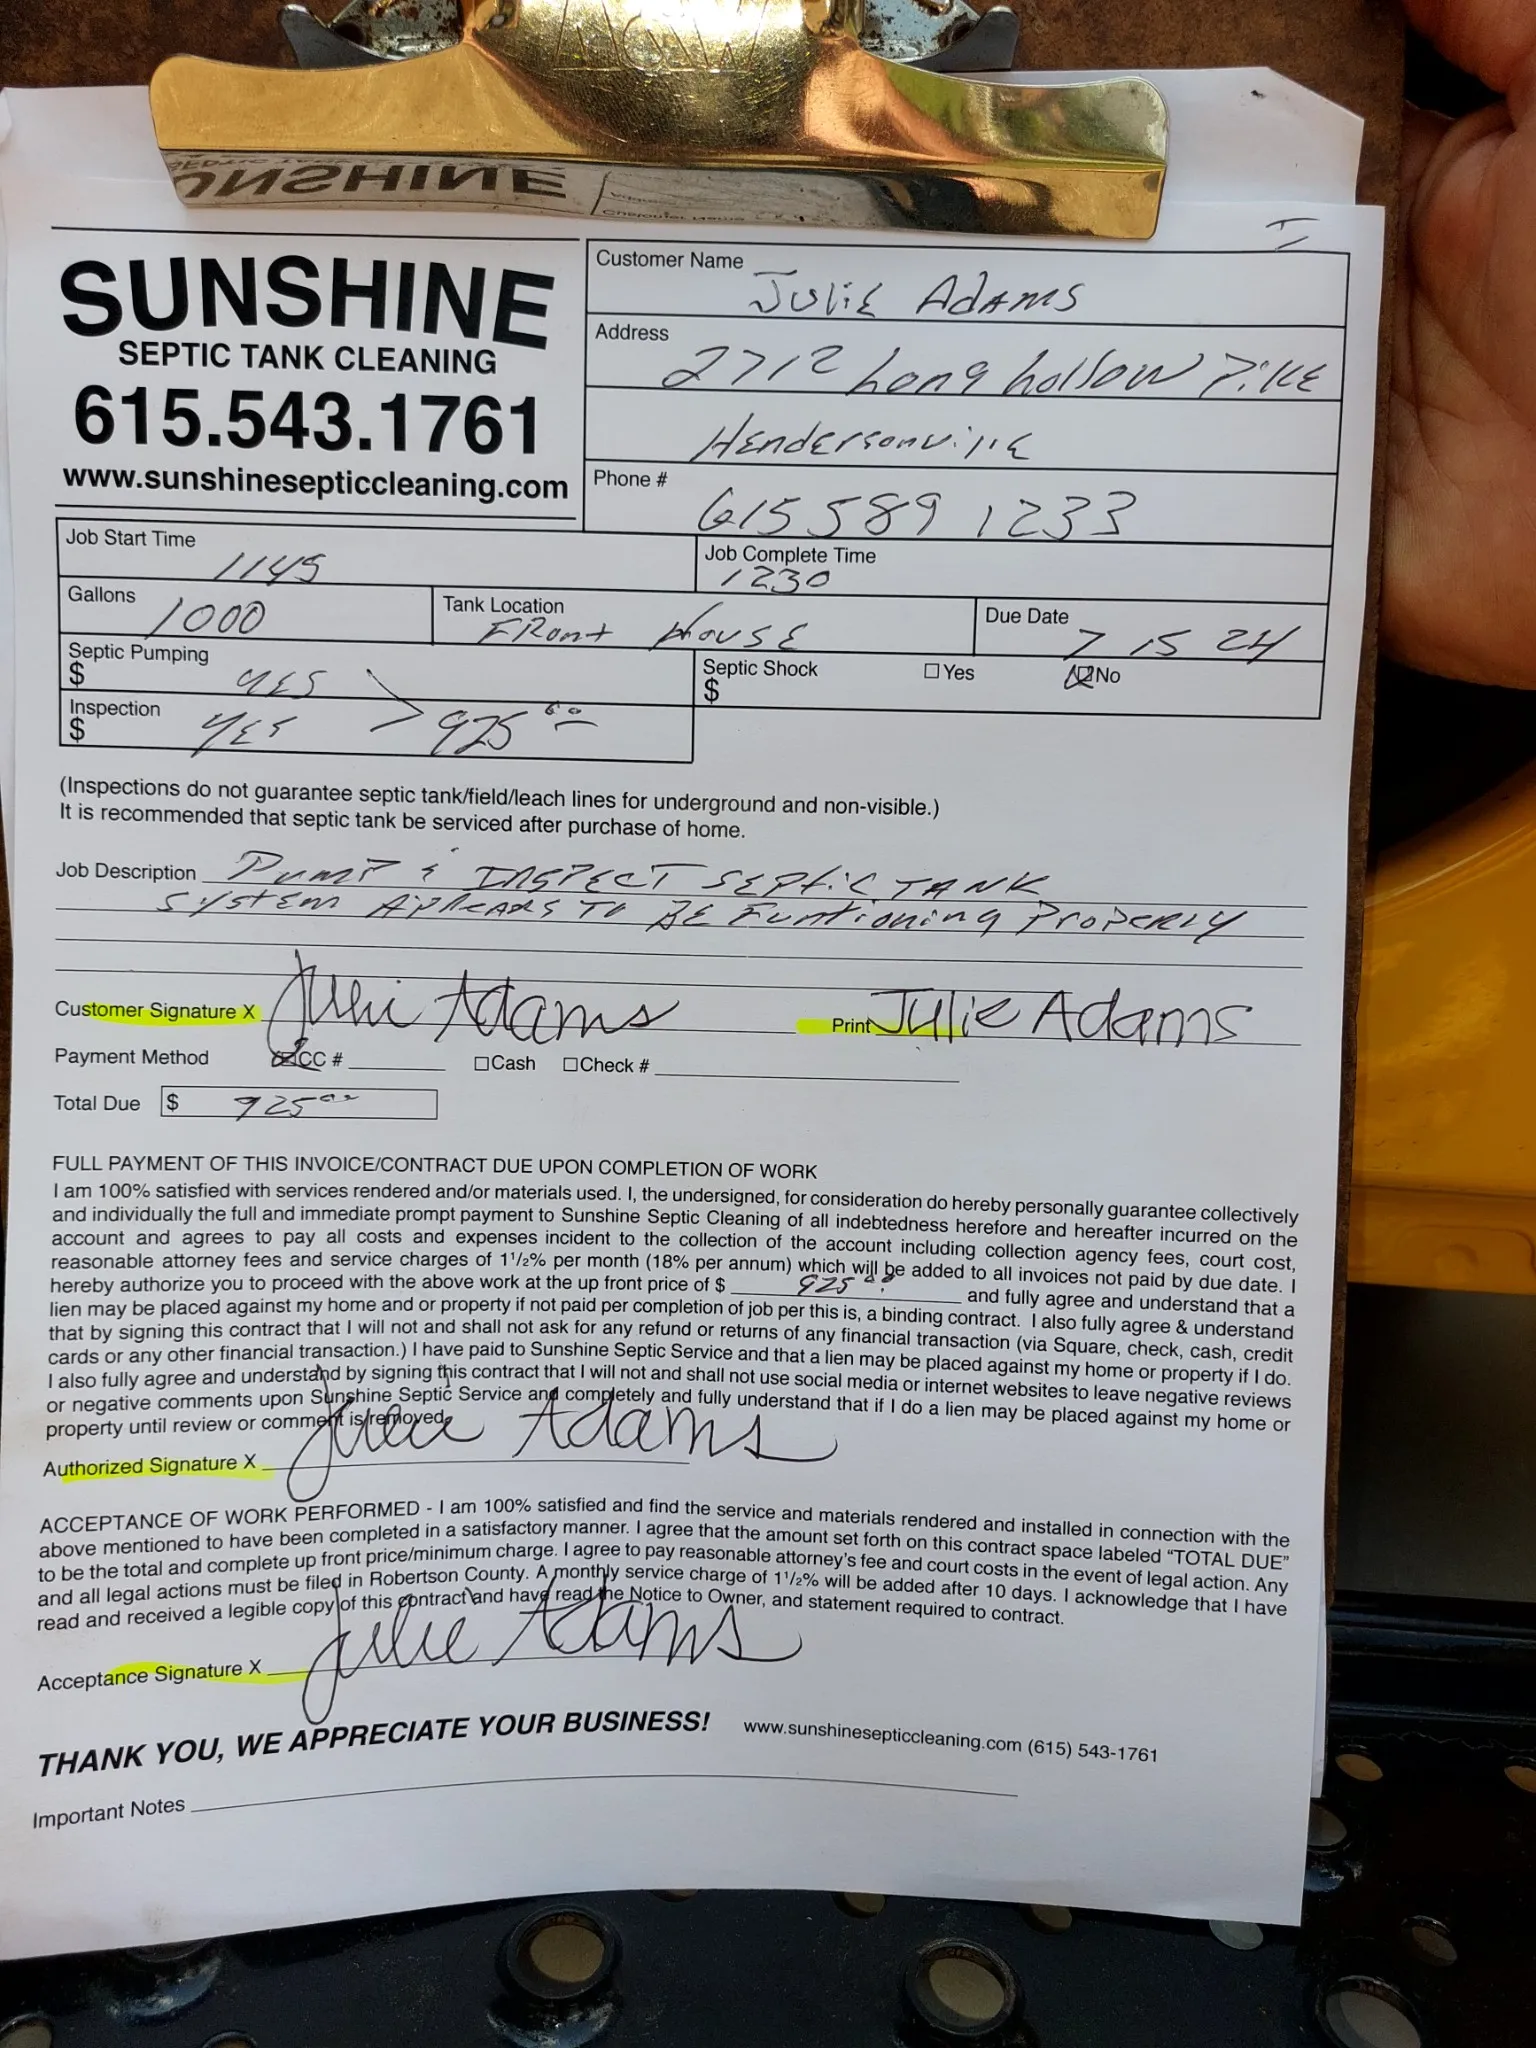 SUNSHINE
SEPTIC TANK CLEANING
615.543.1761
www.sunshinesepticcleaning.com
Customer Name Julie Adams
Address 2712 Long hollow Pike
Hendersonville
Phone # 615 589 1233
Job Start Time 1145
Job Complete Time 1230
Gallons 1000
Tank Location FRont house
Due Date 7 15 24
Septic Pumping
$ YES
Septic Shock ☐ Yes ☒ No
$
Inspection
$ YES 925 00
(Inspections do not guarantee septic tank/field/leach lines for underground and non-visible.)
It is recommended that septic tank be serviced after purchase of home.
Job Description Pump & INSPECT SEPtic TANK
System AppEARS TO BE Funtioning Properly
Customer Signature X Julie Adams Print Julie Adams
Payment Method ☒ CC # ☐ Cash ☐ Check #
Total Due $ 925 00
FULL PAYMENT OF THIS INVOICE/CONTRACT DUE UPON COMPLETION OF WORK
I am 100% satisfied with services rendered and/or materials used. I, the undersigned, for consideration do hereby personally guarantee collectively
and individually the full and immediate prompt payment to Sunshine Septic Cleaning of all indebtedness herefore and hereafter incurred on the
account and agrees to pay all costs and expenses incident to the collection of the account including collection agency fees, court cost,
reasonable attorney fees and service charges of 1 1/2% per month (18% per annum) which will be added to all invoices not paid by due date. I
hereby authorize you to proceed with the above work at the up front price of $ 925 00 and fully agree and understand that a
lien may be placed against my home and or property if not paid per completion of job per this is, a binding contract. I also fully agree & understand
that by signing this contract that I will not and shall not ask for any refund or returns of any financial transaction (via Square, check, cash, credit
cards or any other financial transaction.) I have paid to Sunshine Septic Service and that a lien may be placed against my home or property if I do.
I also fully agree and understand by signing this contract that I will not and shall not use social media or internet websites to leave negative reviews
or negative comments upon Sunshine Septic Service and completely and fully understand that if I do a lien may be placed against my home or
property until review or comment is removed.
Authorized Signature X Julie Adams
ACCEPTANCE OF WORK PERFORMED - I am 100% satisfied and find the service and materials rendered and installed in connection with the
above mentioned to have been completed in a satisfactory manner. I agree that the amount set forth on this contract space labeled "TOTAL DUE"
to be the total and complete up front price/minimum charge. I agree to pay reasonable attorney's fee and court costs in the event of legal action. Any
and all legal actions must be filed in Robertson County. A monthly service charge of 1 1/2% will be added after 10 days. I acknowledge that I have
read and received a legible copy of this contract and have read the Notice to Owner, and statement required to contract.
Acceptance Signature X Julie Adams
THANK YOU, WE APPRECIATE YOUR BUSINESS! www.sunshinesepticcleaning.com (615) 543-1761
Important Notes